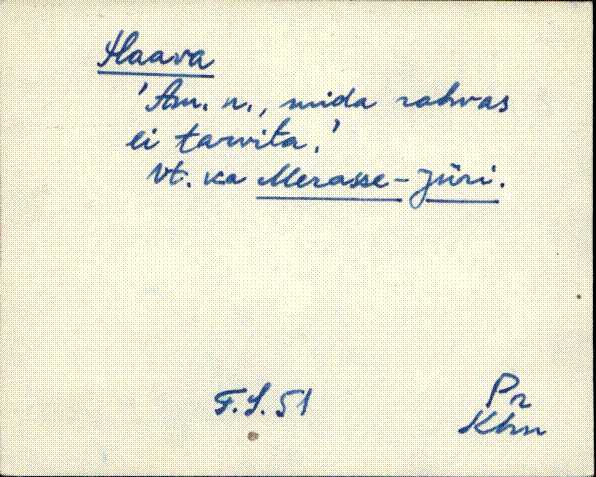 Haava
'Am. n., mida rahvas
ei tarvita.'
Vt. ka Merasse-Jüri.
F.S. 51
Pr
Khn